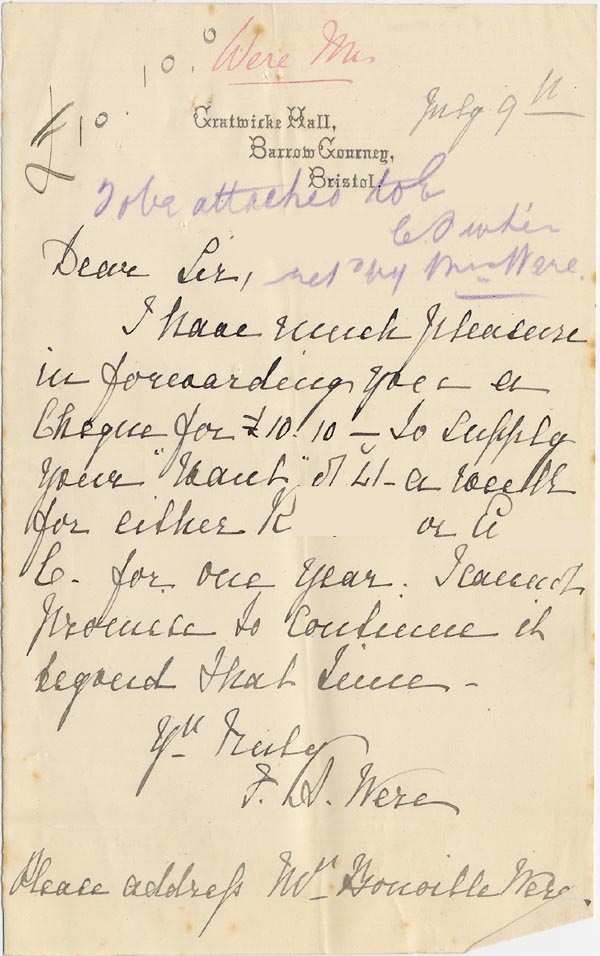 Were Mrs
10. 10. 0
July 9th
Gratwicke Hall,
Barrow Gourney,
Bristol.
To be attached to E
C S when
retd by Mrs Were.
Dear Sir,
I have much pleasure
in forwarding you a
Cheque for £10.10 – to supply
your "Want" of 4/- a week
for either R or E
C. for one year. I cannot
promise to continue it
beyond that time –
Yrs truly
F. S. Were
Please address Mrs Gonville Were.